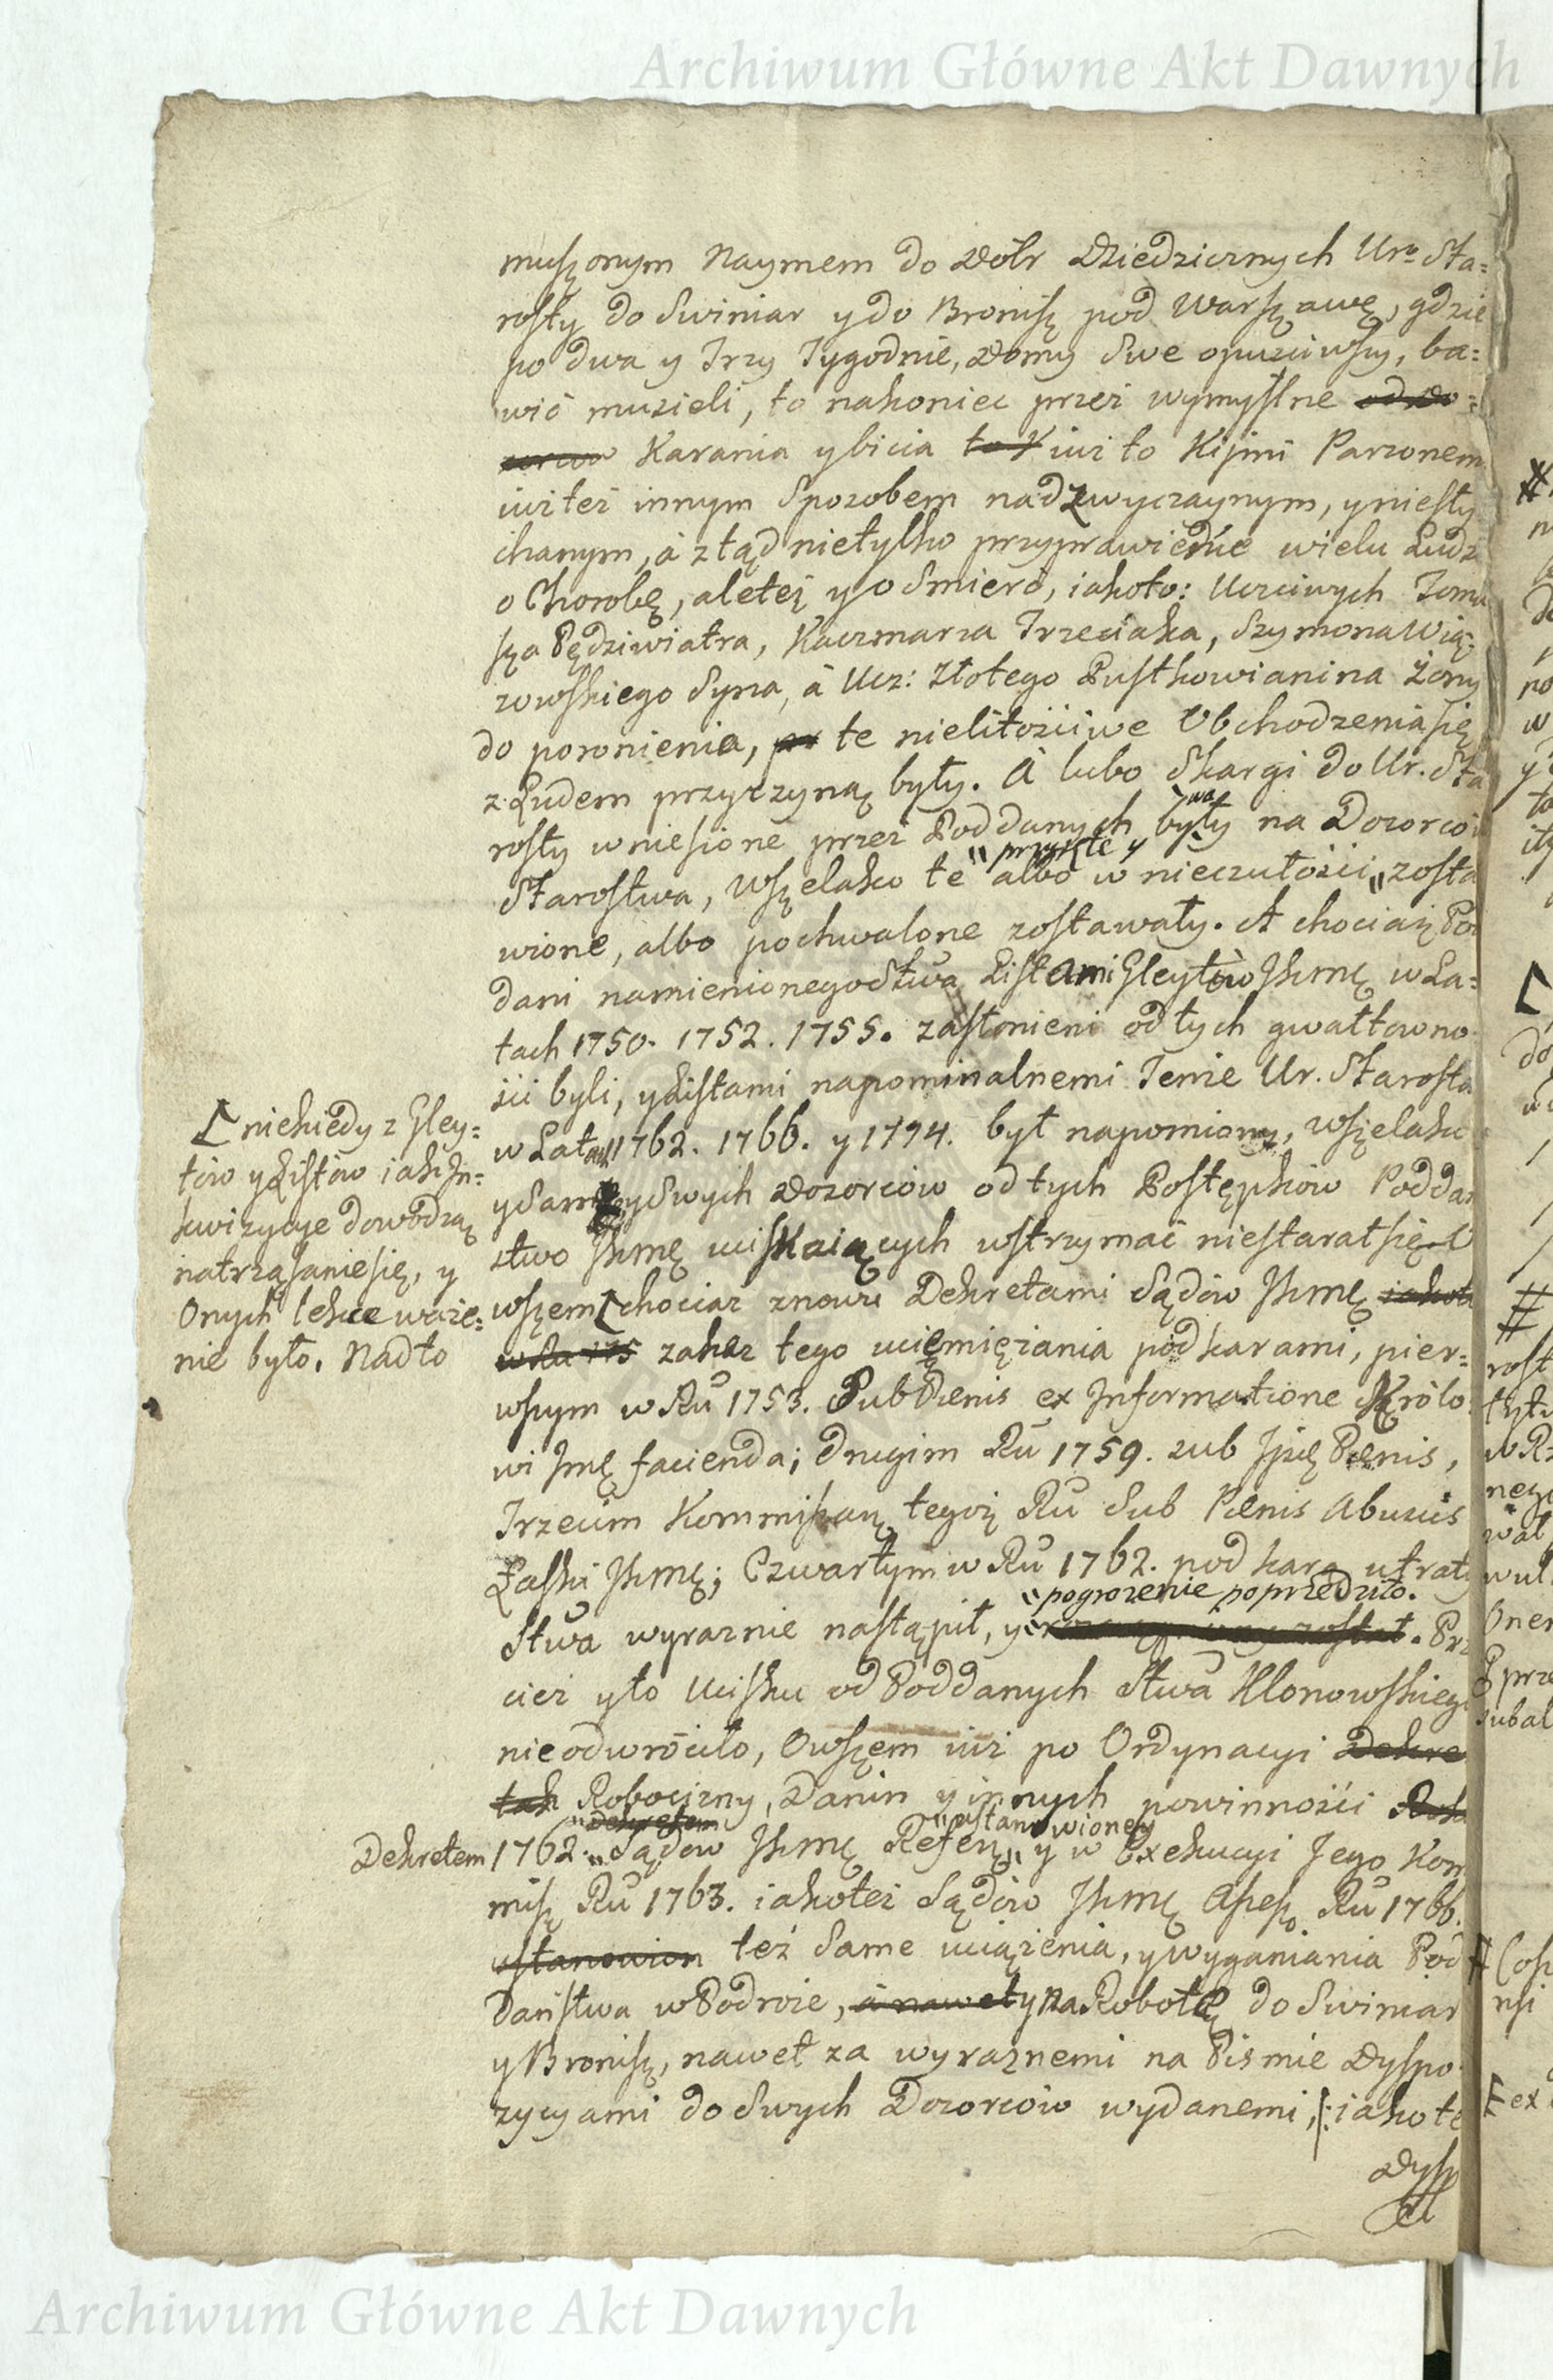 Archiwum Główne Akt Dawnych
muszonym Naymem do Dóbr Dziedzicznych Uro Sta=
rosty do Swiniar y do Bronisz pod Warszawę, gdzie
po dwa y Trzy Tygodnie, Domy Swe opuściwszy, ba=
wić musieli, to nakoniec przez wymyślne od Do=
zorcow Karania y bicia to K iuż to Kijmi Parzonem
iuż też innym Sposobem nadzwyczaynym, y niesły
chanym, à ztąd nietylko przyprawienie wielu Ludzi
o Chorobę, ale też y o Smierć, iakoto: Uczciwych Toma
sza Pędziwiatra, Kaczmarza Trzeciaka, Szymona Wią
zowskiego Syna, à Ucz: Złotego Pustkowianina Żony
do poronienia, pr te nielitościwe Obchodzenia się
z Ludem przyczyną były. A lubo Skargi do Ur. Sta
rosty wniesione przez Poddanych były na Dozorców
wa
Starostwa, Wszelako te albo w nieczułości zosta
przykte y
wione, albo pochwalone zostawały. A chociaż Pod
dani namienionego Stwa Listami Gleytów JKmę w La=
tach 1750. 1752. 1755. zasłonieni od tych gwałtowno
ści byli, y Listami napominalnemi Tenże Ur. Starosta
w Latach 1762. 1766. y 1774. był napomiony, Wszelako
y Sam y Swych Dozorców od tych Postępków Poddań
stwo JKmę uciskaiących wstrzymać niestarał się, O
wszem [ chociaż znowu Dekretami Sądów JKmę iakoto
w Ru 175 zakaz tego uciemiężania pod karami, pier=
wszym w Ru 1753. Sub Pœnis ex Informatione Królo
wi Jmę facienda; drugim Ru 1759. sub Jpię Pœnis,
Trzecim Kommisar tegoż Ru Sub Pœnis Abusus
Łaski JKmę; Czwartym w Ru 1762. pod karą utraty
Stwa wyraznie nastąpił, y . Prze
pogrozenie poprzedziło.
cież y to Ucisku od Poddanych Stwa Klonowskiego
nieodwróciło, Owszem iuż po Ordynacyi Dekre
tak Robocizny, Danin y innych powinności
Dekretem
ustanowioney
Dekretem 1762. Sądow JKmę Refen y w Exekucyi Jego Kom
misz Ru 1763. iako też Sądów JKmę Assess Ru 1766.
ustanowion też Same uciążenia, y wyganiania Pod
Daństwa w Podroże, à nawet y na Robotę do Swiniar
y Bronisz, nawet za wyraznemi na Pismie Dyspo
zycyami do Swych Dozorców wydanemi, iakote
Dysp
[ niekiedy z Gley=
tów y Listów iak In=
kwizycye dowodzą
natrząsanie się, y
Onych lekce waże=
nie było. Nadto
Archiwum Główne Akt Dawnych